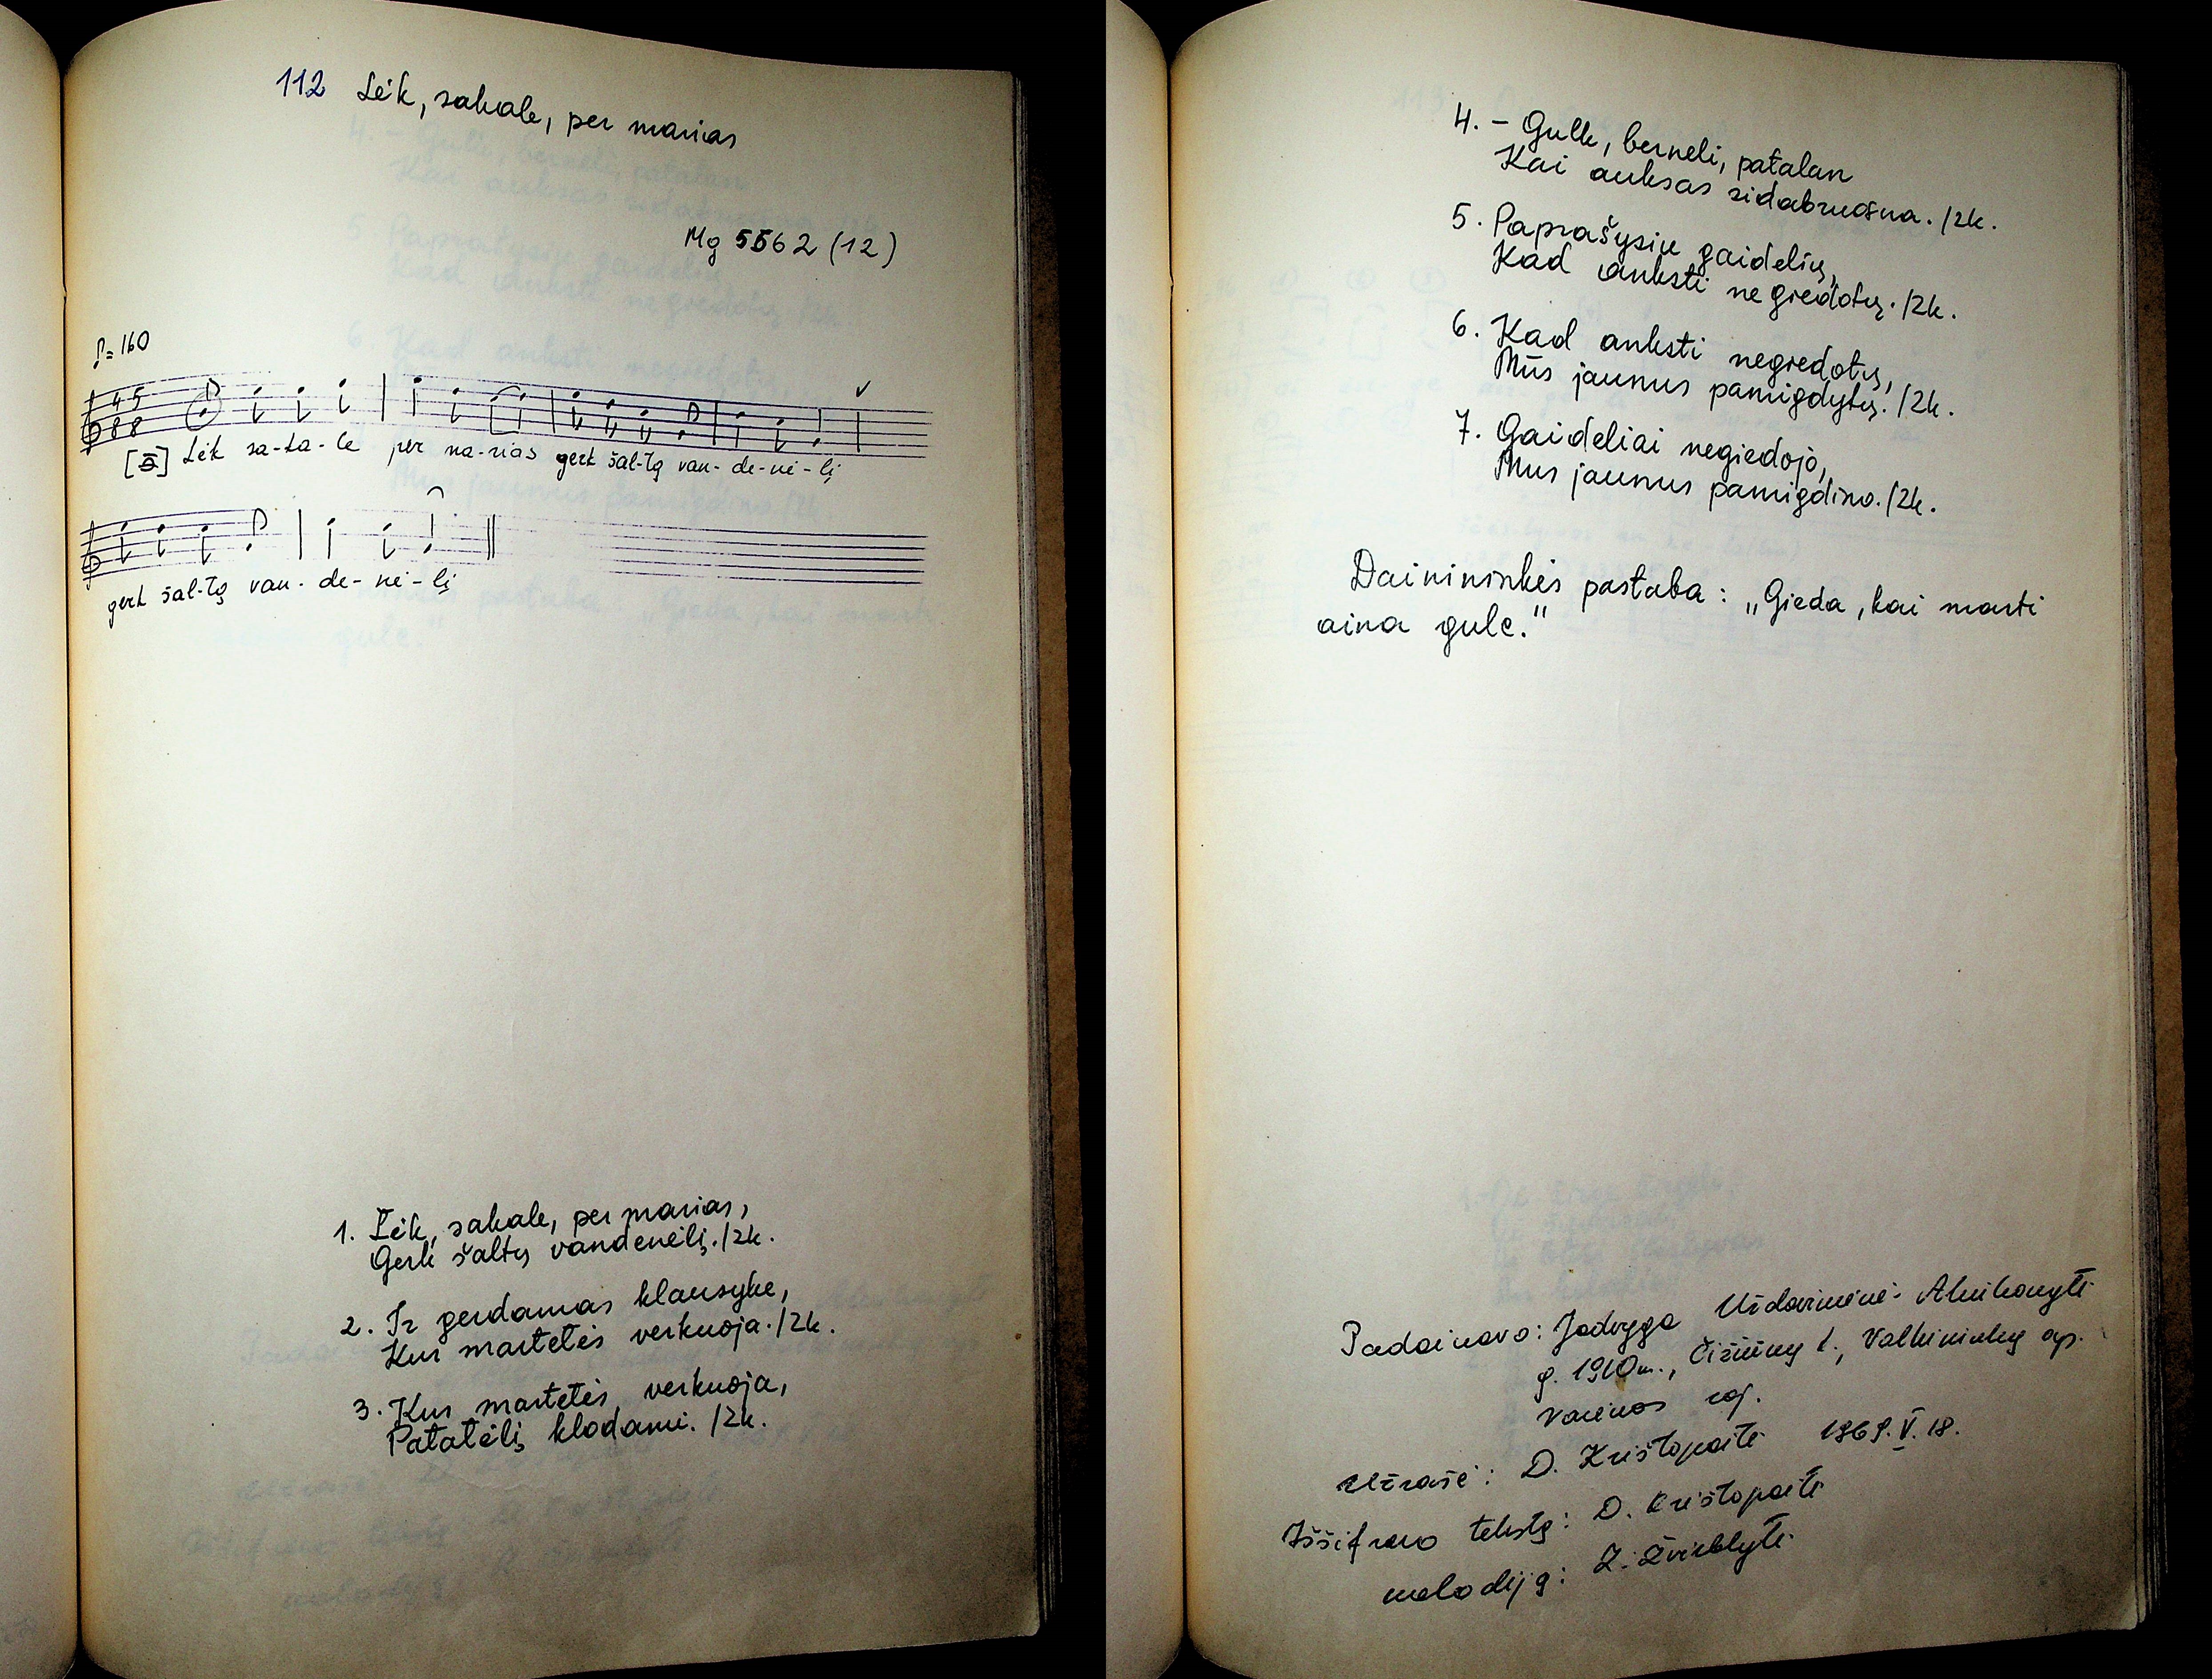 112 Lėk, sakale, per marias
Mg 5562 (12)
♪= 160
4 5
8 8
[a] Lėk sa-ka-le per ma-rias gerk šal-tą van-de-nė-lį
gerk šal-tą van-de-nė-lį
1. Lėk, sakale, per marias,
Gerk šaltų vandenėlį./2k.
2. Ir gerdamas klausyke,
Kur martelės verkuoja./2k.
3. Kur martelės verkuoja,
Patalėlį klodami. /2k.
4. – Gulk, berneli, patalan
Kai auksas sidabruosna. /2k.
5. Paprašysiu gaidelių,
Kad anksti negiedotų. /2k.
6. Kad anksti negiedotų,
Mūs jaunus pamigdytų. /2k.
7. Gaideliai negiedojo,
Mus jaunus pamigdino. /2k.
Dainininkės pastaba: „Gieda, kai marti
aina gulc."
Padainavo: Jadvyga
g. 1910 m., Čižiūnų k., Valkininkų ap.
Varėnos raj.
Užrašė: D. Krištopaitė 1969.V.18.
Iššifravo tekstą: D. Krištopaitė
melodiją: Z. Žvirblytė